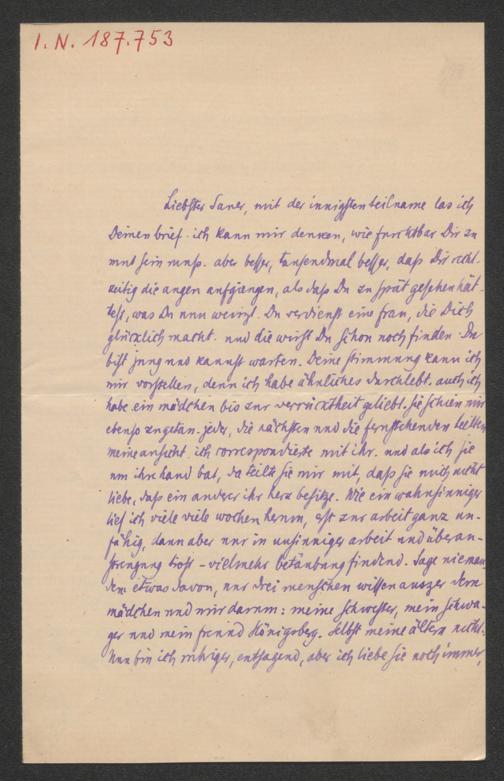 I. N. 187.753
Liebster Sauer, mit der innigsten teilname las ich
Deinen brief. ich kann mir denken, wie furchtbar Dir zu
mut sein muss. aber besser, tausendmal besser, dass Dir recht-
zeitig die augen aufgiengen, als dass Du zu spät gesehen hät-
test, was Du nun weisst. Du verdienst eine frau, die Dich
glücklich macht. und die wirst Du schon noch finden. Du
bist jung und kannst warten. Deine stimmung kann ich
mir vorstellen, denn ich habe ähnliches durchlebt. auch ich
habe ein mädchen bis zur verrücktheit geliebt. sie schien mir
ebenso zugetan. jeder, die nächsten und die fernstehenden teilten
meine ansicht. ich correspondierte mit ihr. und als ich sie
um ihre hand bat, da teilte sie mir mit, dass sie mich nicht
liebe, dass ein anderer ihr herz besitze. Wie ein wahnsinniger
lief ich viele viele wochen herum, erst zur arbeit ganz un-
fähig, dann aber nur in unsinniger arbeit und überan-
strengung trost – vielmehr betäubung findend. Sage nieman-
dem etwas davon, nur drei menschen wissen auszer dem
mädchen und mir darum: meine schwester, mein schwa-
ger und mein freund Königsberg. selbst meine ältern nicht.
Nun bin ich ruhiger, entsagend, aber ich liebe sie noch immer,